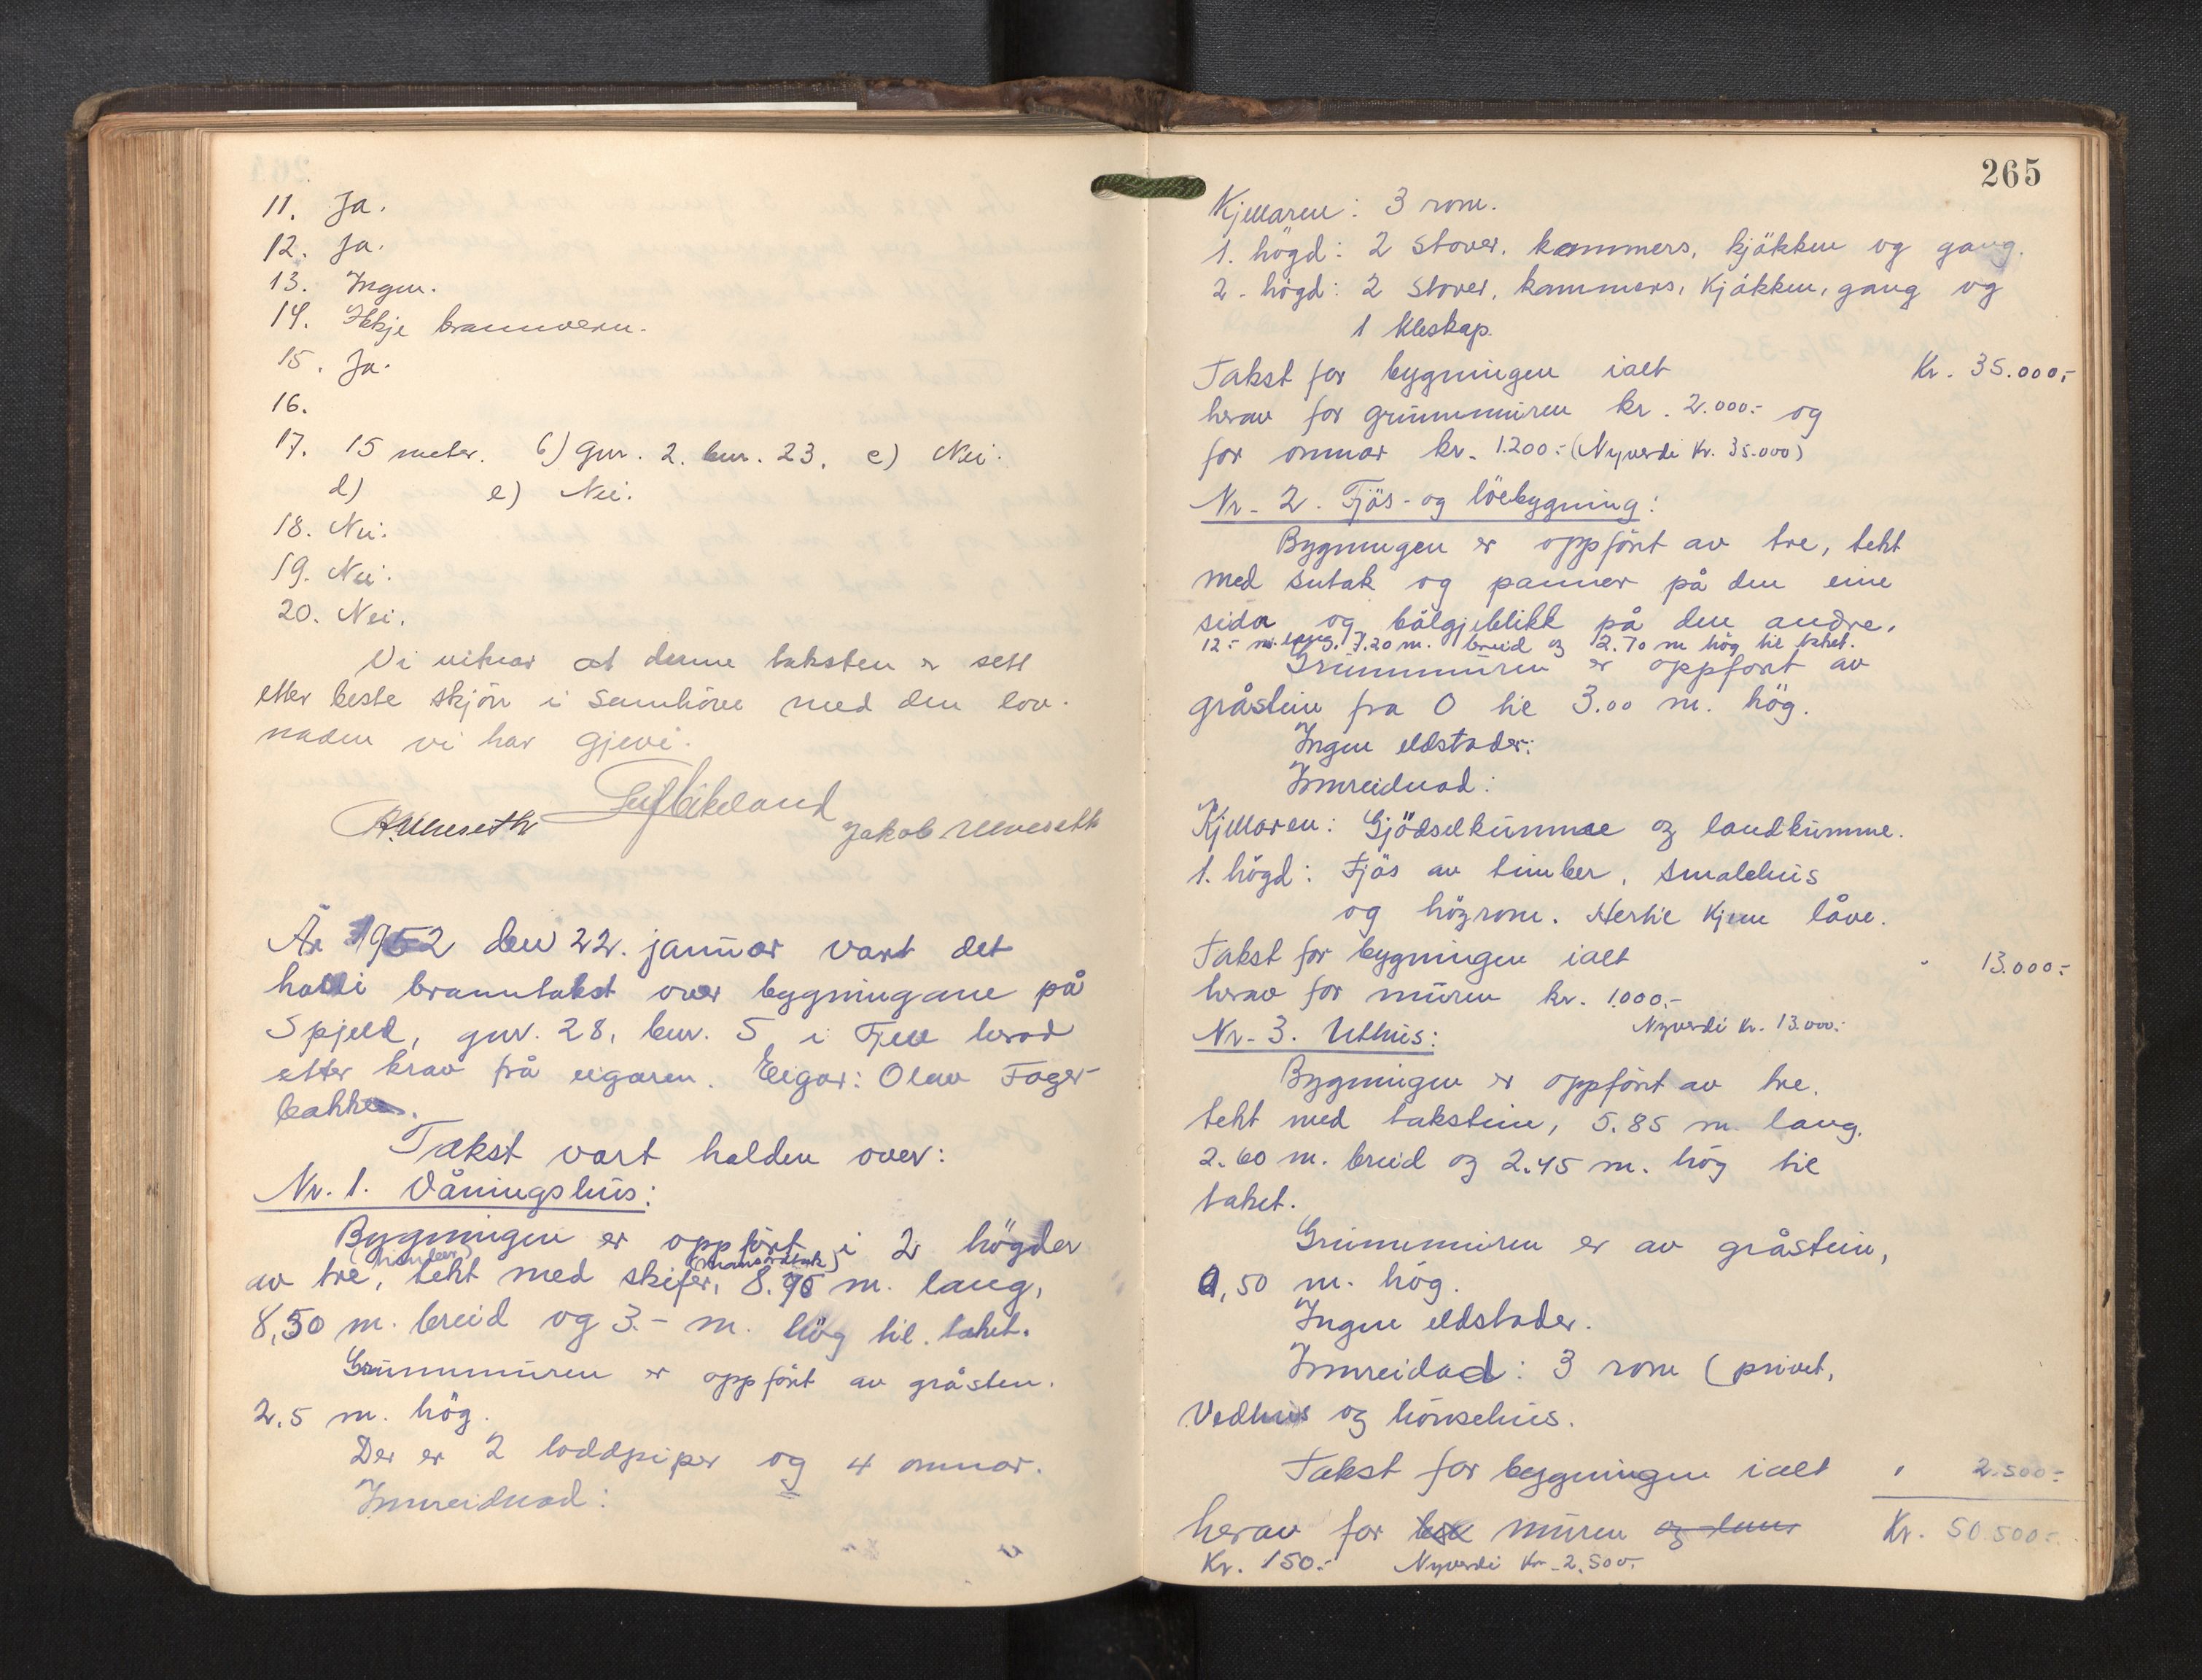 11. Ja.
12. Ja.
13. Ingen.
14. Ikkje brannvern.
15. Ja.
16.
17. 15 meter. b) gnr. 2. bnr. 23. c) Nei.
d) e) Nei.
18. Nei.
19. Nei.
20. Nei.
Vi vitnar at denne taksten er sett
etter beste skjön i samhöve med den lov-
naden vi har gjevi.
Jakob Ulveseth
År 1952 den 22. januar vart det
halli branntakst over bygningane på
Spjeld, gnr. 28, bnr. 5 i Fjell herad
etter krav frå eigaren. Eigar: Olav Fager-
bakke.
Takst vart halden over:
Nr. 1. Våningshus:
Bygningen er oppfört i 2 högder
(timber) (mansardtak)
av tre, tekt med skifer, 8.95 m. lang,
8,50 m. breid og 3.- m. hög til taket.
Grunnmuren er oppfört av gråsten.
2,5 m. hög.
Der er 2 loddpiper og 4 omnar.
Innreidnad:
265
Kjellaren: 3 rom.
1. högd: 2 stover, kammers, kjökken og gang.
2. högd: 2 stover, kammers, kjökken, gang og
1 kleskap.
Takst for bygningen ialt Kr. 35.000,-
herav for grunnmuren kr. 2.000.- og
for omnar kr. 1.200.- (Nyverdi kr. 35.000)
Nr. 2. Fjös- og löebygning:
Bygningen er oppfört av tre, tekt
med sutak og panner på den eine
sida og bölgjeblikk på den andre.
12.- m. lang. 7.20 m. breid og 2.70 m hög til taket.
Grunnmuren er oppfört av
gråstein fra 0 til 3.00 m. hög.
Ingen eldstader.
Innreidnad:
Kjellaren: Gjödselkumme og landkumme.
1. högd: Fjös av timber, smalehus
og högrom. Hertil kjem låve.
Takst for bygningen ialt " 13.000.-
herav for muren kr. 1.000.-
Nyverdi kr. 13.000.-
Nr. 3. Uthus:
Bygningen er oppfört av tre.
tekt med takstein, 5.85 m. lang.
2.60 m. breid og 2.45 m. hög til
taket.
Grunnmuren er av gråstein,
0,50 m. hög.
Ingen eldstader.
Innreidad: 3 rom (privet,
Vedhus og hönsehus.
Takst for bygningen ialt " 2.500.-
herav for muren og Kr. 50.500.-
Kr. 150.- Nyverdi kr. 2.500.-